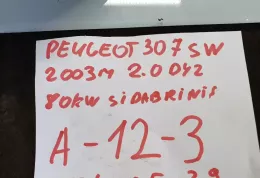 PEUGEOT 307 SW
2003M 2.0 DYZ
80KW SIDABRINIS
A-12-3